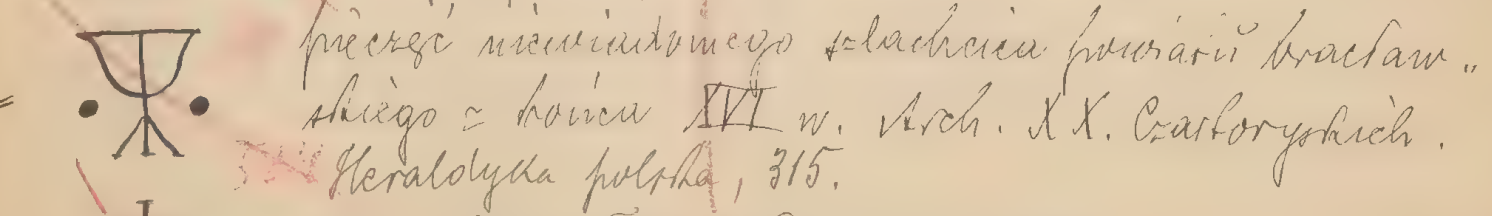 pieczęć niewiadomego szlachcica powiatu bracław„
skiego z końca XVI w. Arch. XX. Czartoryskich.
Heraldyka polska, 315.